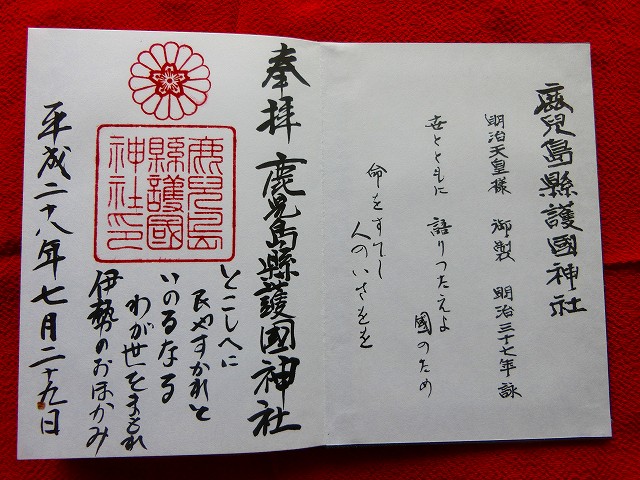 鹿兒島縣護國神社
明治天皇様　御製　明治三十七年詠
世とともに　語りつたえよ　國のため
命をすてし　人のいさをを
奉拝　鹿兒島縣護國神社
鹿兒島
縣護國
神社印
とこしへに
民やすかれと
いのるなる
わが世をまもれ
伊勢のおほかみ
平成二十八年七月二十九日